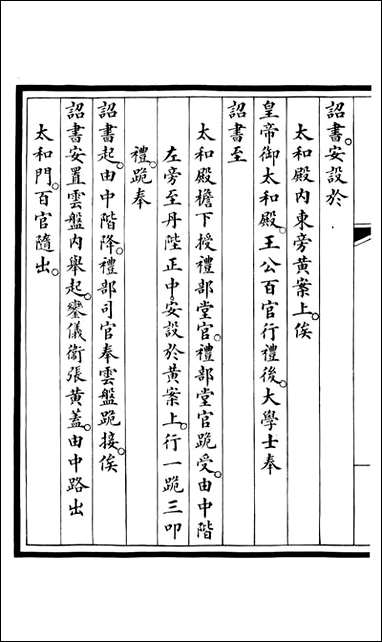 詔書。安設於
太和殿內東旁黃案上。俟
皇帝御太和殿。王公百官行禮後。大學士奉
詔書至
太和殿檐下授禮部堂官。禮部堂官跪受。由中階
左旁至丹陛正中。安設於黃案上。行一跪三叩
禮。跪奉
詔書起。由中階降。禮部司官奉雲盤跪接。俟
詔書安置雲盤內舉起。鑾儀衛張黃蓋。由中路出
太和門。百官隨出。